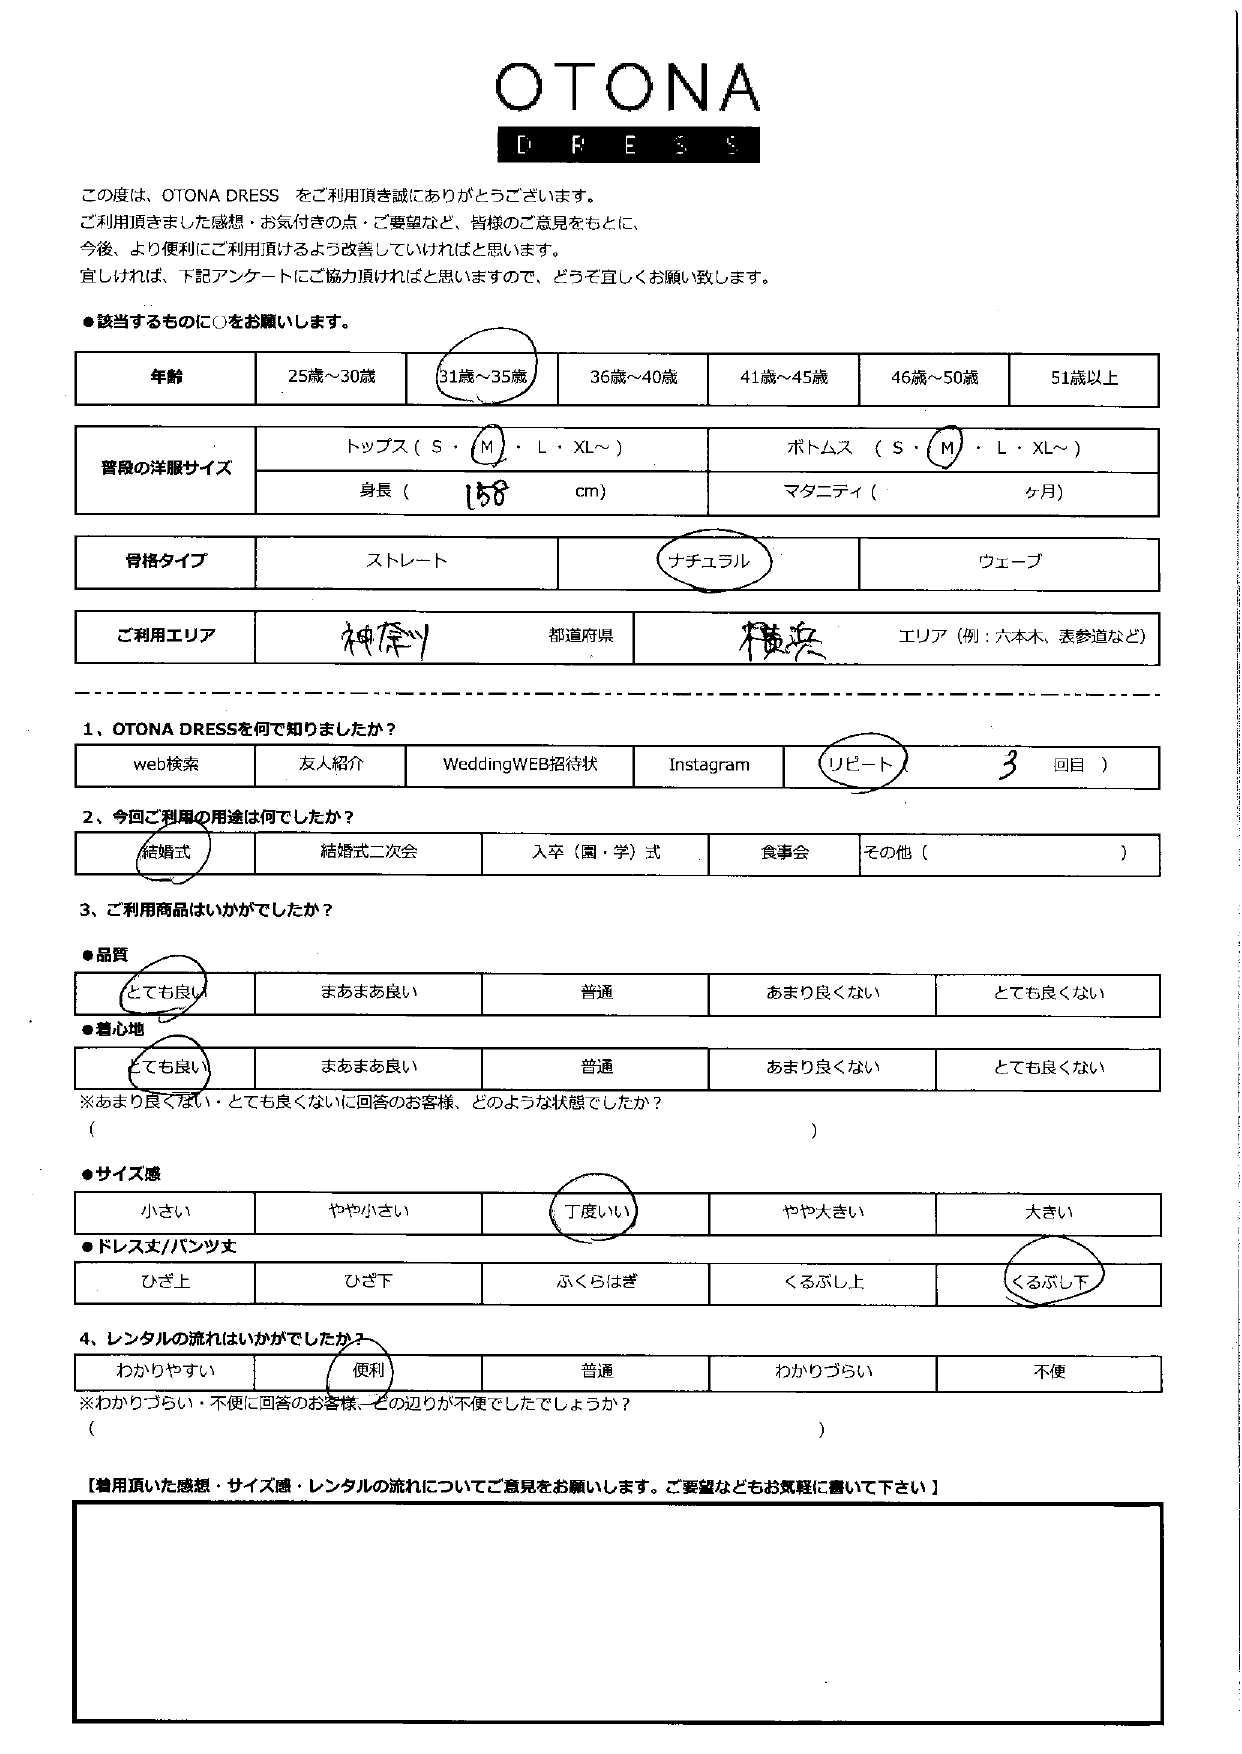 OTONA
DRESS
この度は、OTONA DRESS　をご利用頂き誠にありがとうございます。
ご利用頂きました感想・お気付きの点・ご要望など、皆様のご意見をもとに、
今後、より便利にご利用頂けるよう改善していければと思います。
宜しければ、下記アンケートにご協力頂ければと思いますので、どうぞ宜しくお願い致します。
●該当するものに○をお願いします。
年齢 25歳～30歳 31歳～35歳 36歳～40歳 41歳～45歳 46歳～50歳 51歳以上
普段の洋服サイズ トップス ( S ・ M ・ L ・ XL～ ) ボトムス ( S ・ M ・ L ・ XL～ )
身長 ( 158 cm) マタニティ ( ヶ月)
骨格タイプ ストレート ナチュラル ウェーブ
ご利用エリア 神奈川 都道府県 横浜 エリア（例：六本木、表参道など）
1、OTONA DRESSを何で知りましたか？
web検索 友人紹介 WeddingWEB招待状 Instagram リピート ( 3 回目 )
2、今回ご利用の用途は何でしたか？
結婚式 結婚式二次会 入卒（園・学）式 食事会 その他 ( )
3、ご利用商品はいかがでしたか？
●品質
とても良い まあまあ良い 普通 あまり良くない とても良くない
●着心地
とても良い まあまあ良い 普通 あまり良くない とても良くない
※あまり良くない・とても良くないに回答のお客様、どのような状態でしたか？
( )
●サイズ感
小さい やや小さい 丁度いい やや大きい 大きい
●ドレス丈/パンツ丈
ひざ上 ひざ下 ふくらはぎ くるぶし上 くるぶし下
4、レンタルの流れはいかがでしたか？
わかりやすい 便利 普通 わかりづらい 不便
※わかりづらい・不便に回答のお客様、どの辺りが不便でしたでしょうか？
( )
【着用頂いた感想・サイズ感・レンタルの流れについてご意見をお願いします。ご要望などもお気軽に書いて下さい 】